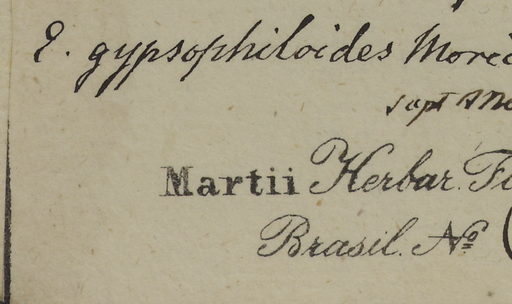 E. gypsophiloides Moric
Martii Herbar. Fl
Brasil. No